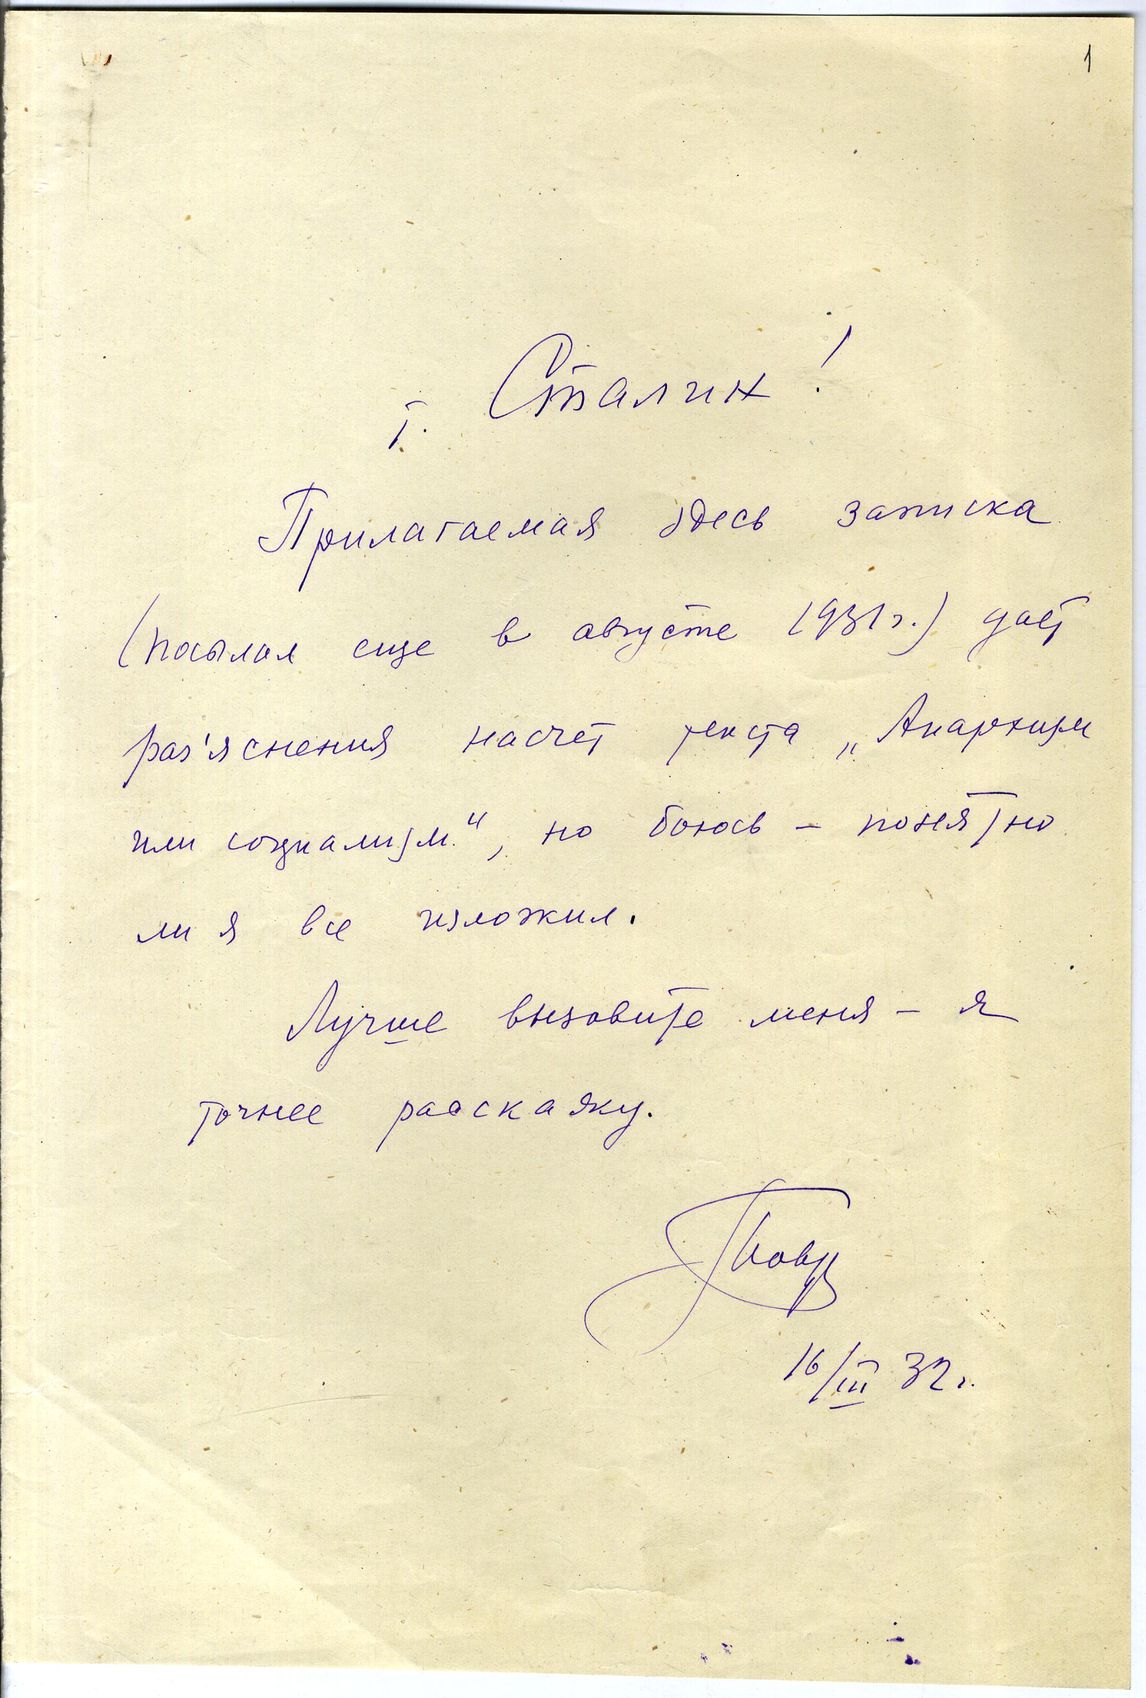 1
т. Сталин!
Прилагаемая здесь записка
(посылал еще в августе 1931 г.) дает
раз'яснения насчет текста „Анархизм
или социализм“, но боюсь – понятно
ли я все изложил.
Лучше вызовите меня – я
точнее расскажу.
16/III 32 г.